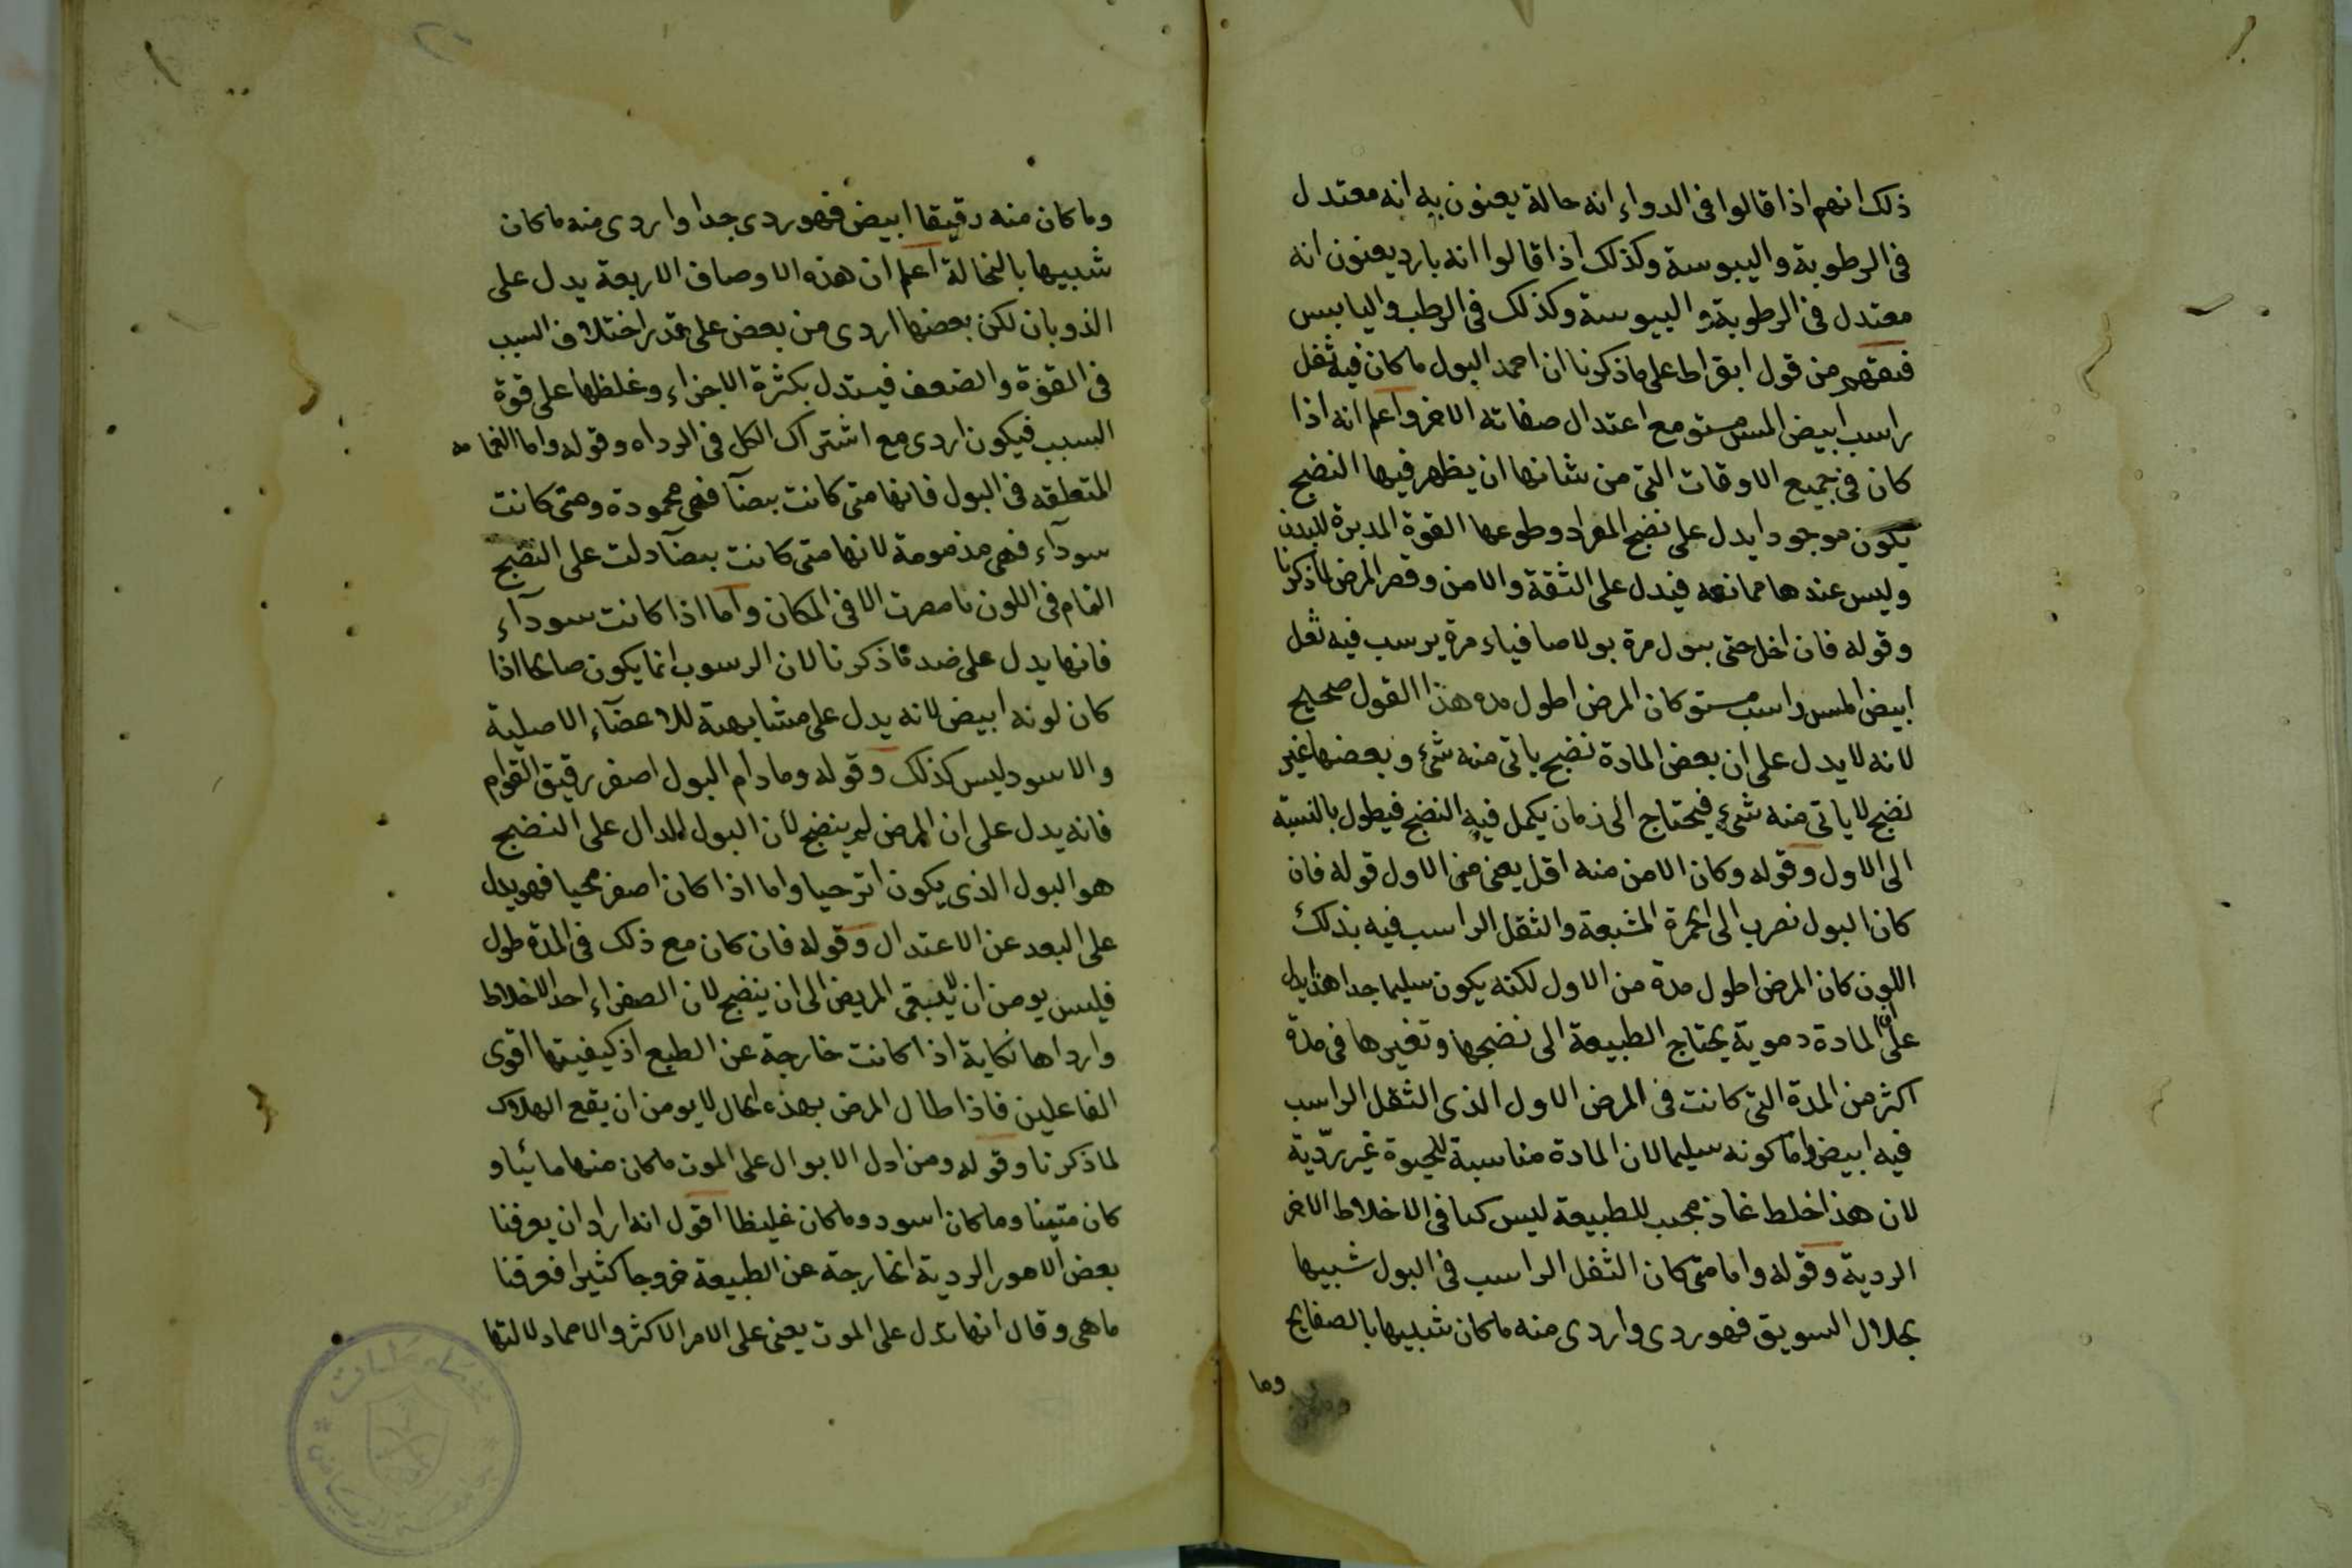 ذلك انهم اذا قالوا فى الدواء انه حالة يعنون به انه معتدل
فى الرطوبة واليبوسة وكذلك اذا قالوا انه بارد يعنون انه
معتدل فى الرطوبة واليبوسة وكذلك فى الرطب واليابس
من قول ابقراط على ما ذكرنا ان احمد البول ما كان فيه ثفل
راسب ابيض املس مستو مع اعتدال صفاته الاخر واعلم انه اذا
كان فى جميع الاوقات التى من شانها ان يظهر فيها النضج
يكون موجودا يدل على نضج المواد وطوعها القوة المدبرة للبدن
وليس عندها ممانعه فيدل على الثقة والامن وقصر المرض لما ذكرنا
وقوله فان اخل حتى يبول مرة بولا صافيا ومرة يرسب فيه ثفل
ابيض املس راسب مستو كان المرض اطول مده هذا القول صحيح
لانه لا يدل على ان بعض المادة نضيج ياتى منه شئ وبعضها غير
نضيج لا ياتى منه شئ فيحتاج الى زمان يكمل فيه النضج فيطول بالنسبة
الى الاول وقوله وكان الامن منه اقل يعنى من الاول قوله فان
كان البول نضرب الى الحمرة المشبعة والثفل الراسب فيه بذلك
اللون كان المرض اطول مدة من الاول لكنه يكون سليما جدا هذا يدل
على ان المادة دموية يحتاج الطبيعة الى نضجها وتغيرها فى مدة
اكثر من المدة التى كانت فى المرض الاول الذى الثفل الراسب
فيه ابيض واما كونه سليما لان المادة مناسبة للحيوة غير رديّة
لان هذا خلط غاذ محبب للطبيعة ليس كما فى الاخلاط الاخر
الردية وقوله واما متى كان الثفل الراسب فى البول شبيها
بجلال السويق فهو ردى واردى منه ما كان شبيها بالصفايح
وما
وما كان منه رقيقا ابيض فهو ردى جدا واردى منه ما كان
شبيها بالنخالة اعلم ان هذه الاوصاف الاربعة يدل على
الذوبان لكن بعضها اردى من بعض على قدر اختلاف السبب
فى القوة والضعف فيستدل بكثرة الاجزاء وغلظها على قوة
السبب فيكون اردى مع اشتراك الكل فى الرداه وقوله واما الغمامه
المتعلقه فى البول فانها متى كانت بيضآ فهى محمودة ومتى كانت
سودآء فهى مذمومة لانها متى كانت بيضآ دلت على النضج
التام فى اللون الا فى المكان واما اذا كانت سودآء
فانها يدل على ضد ما ذكرنا لان الرسوب انما يكون صالحا اذا
كان لونه ابيض لانه يدل على مشابهة للاعضآء الاصلية
والاسود ليس كذلك وقوله وما دام البول اصفر رقيق القوام
فانه يدل على ان المرض لم ينضج لان البول الدال على النضج
هو البول الذى يكون اترجيا واما اذا كان اصفر محيا فهو يدل
على البعد عن الاعتدال وقوله فان كان مع ذلك فى المدة طول
فليس يومن ان لا يبقى المريض الى ان ينضج لان الصفراء احد الاخلاط
وارداها نكاية اذا كانت خارجة عن الطبع اذ كيفيتها اقوى
الفاعلين فاذا طال المرض بهذه الحال لا يومن ان يقع الهلاك
لما ذكرنا وقوله ومن ادل الابوال على الموت ما كان منها مائيا و
كان متينا وما كان اسود وما كان غليظا اقول انه اراد ان يعرفنا
بعض الامور الردية الخارجة عن الطبيعة خروجا كثيرا فعرفنا
ما هى وقال انها تدل على الموت يعنى على الامر الاكثر والا فما دلالتها